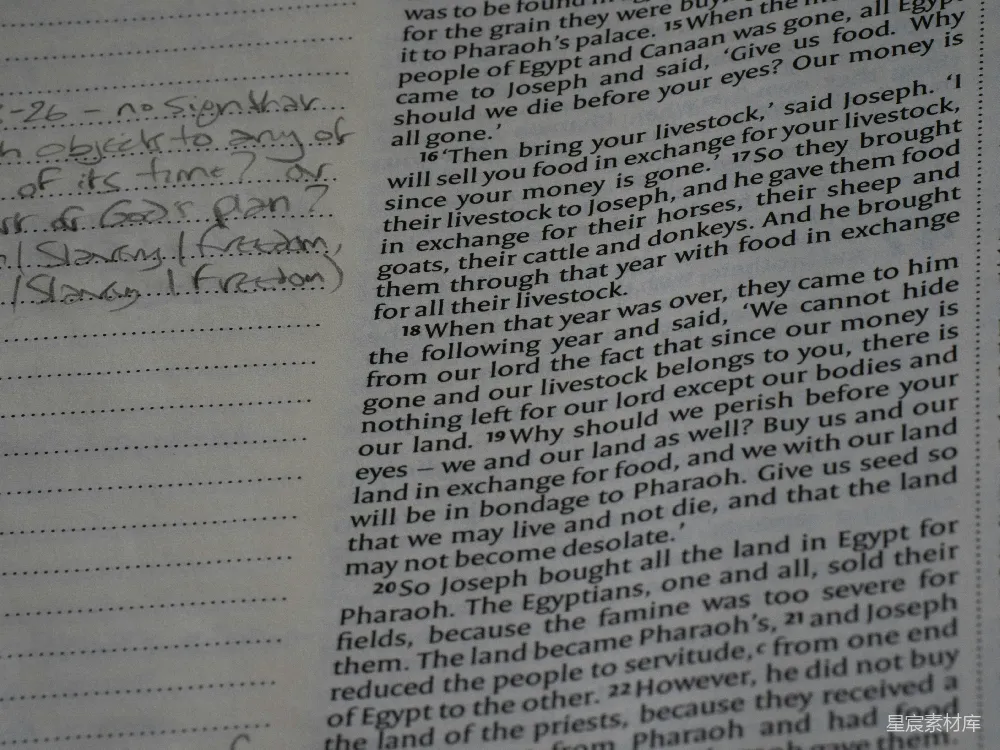 -26 – no sign that
objects to any of
of its time? Or
of God's plan?
/ Slavery / freedom,
/ Slavery / freedom)
was to be found in
for the grain they were buy
it to Pharaoh's palace. 15 When the
people of Egypt and Canaan was gone, all Egypt
came to Joseph and said, 'Give us food. Why
should we die before your eyes? Our money is
all gone.'
16 'Then bring your livestock,' said Joseph. 'I
will sell you food in exchange for your livestock,
since your money is gone.' 17 So they brought
their livestock to Joseph, and he gave them food
in exchange for their horses, their sheep and
goats, their cattle and donkeys. And he brought
them through that year with food in exchange
for all their livestock.
18 When that year was over, they came to him
the following year and said, 'We cannot hide
from our lord the fact that since our money is
gone and our livestock belongs to you, there is
nothing left for our lord except our bodies and
our land. 19 Why should we perish before your
eyes – we and our land as well? Buy us and our
land in exchange for food, and we with our land
will be in bondage to Pharaoh. Give us seed so
that we may live and not die, and that the land
may not become desolate.'
20 So Joseph bought all the land in Egypt for
Pharaoh. The Egyptians, one and all, sold their
fields, because the famine was too severe for
them. The land became Pharaoh's, 21 and Joseph
reduced the people to servitude, c from one end
of Egypt to the other. 22 However, he did not buy
the land of the priests, because they received a
from Pharaoh and had food
them
星宸素材库